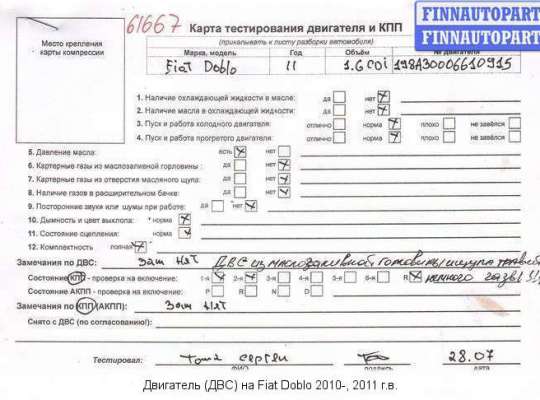 61667 Карта тестирования двигателя и КПП
FINNAUTOPART
FINNAUTOPART
Место крепления карты компрессии
(прикалывать к листу разборки автомобиля)
Марка, модель Год Объём № двигателя
Fiat Doblo 11 1.6 CDi 198A30006610915
1. Наличие охлаждающей жидкости в масле: да нет
2. Наличие масла в охлаждающей жидкости: да нет
3. Пуск и работа холодного двигателя: отлично норма плохо не завёлся
4. Пуск и работа прогретого двигателя: отлично норма плохо не завёлся
5. Давление масла: есть нет
6. Картерные газы из маслозаливной горловины: да нет
7. Картерные газы из отверстия масляного щупа: да нет
8. Наличие газов в расширительном бачке: да нет
9. Посторонние звуки или шумы при работе: да нет
10. Дымность и цвет выхлопа: норма
11. Состояние сцепления: норма
12. Комплектность полная
Замечания по ДВС: Зам нет ДВС из маслозаливной горловины
Состояние КПП - проверка на включение: 1-я 2-я 3-я 4-я 5-я 6-я R немного газы !!!
Состояние АКПП - проверка на включение: P R N D
Замечания по КПП (АКПП): Зам нет
Снято с ДВС (по согласованию!):
Тестировал: Сергей 28.07
ФИО подпись дата
Двигатель (ДВС) на Fiat Doblo 2010-, 2011 г.в.